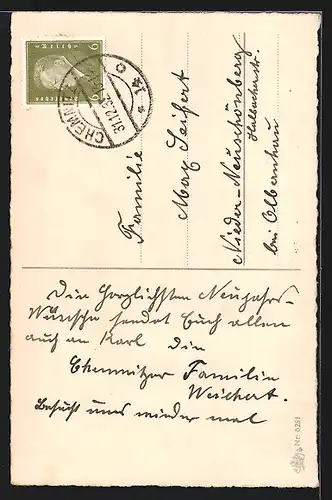 CHEMNITZ
31.12.3
6
Familie
Max Seifert
Nieder-Neuschönberg
bei Olbernhau
Die Herzlichsten Neujahrs-
Wünsche sendet Euch allen
auch an Karl Die
Chemnitzer Familie
Weichert.
Besucht uns wieder mal
Nr. 6251